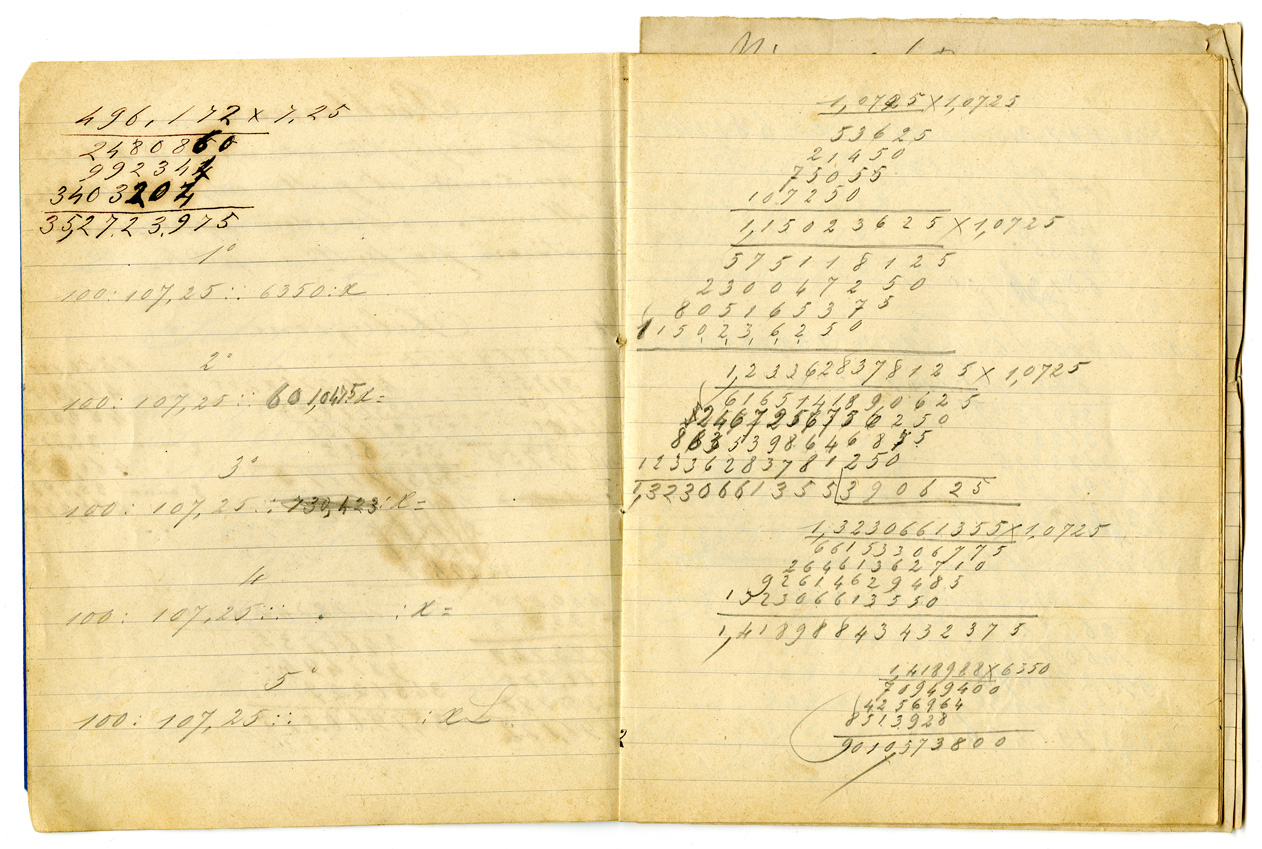 496,172 x 7,25
2480860
992344
3403204
35,2723,975
1º
100: 107,25:: 6350:x
2º
100: 107,25:: 601,0475:x=
3º
100: 107,25:: 730,423:x=
4
100: 107,25:: . :x=
5º
100: 107,25:: :x
1,0725 x 1,0725
53625
21450
75055
107250
1,15023625 x 1,0725
575118125
230047250
805165375
1150236250
1,233628378125 x 1,0725
6165141890625
2467256756250
8635398646875
12336283781250
1,3230661355390625
1,3230661355 x 1,0725
66153306775
26461362710
92614629485
132306613550
1,41898843432375
1,418988 x 6350
70949400
4256964
8513928
9010,573800
2